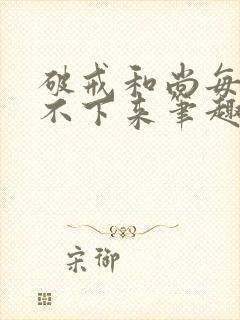 破戒和尚每
不下来笔趣
宋御